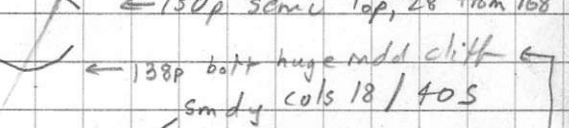 ← 150p semi top, 28 from 108
← 138p bott huge mdd cliff ←
smdy cols 18 / 40s